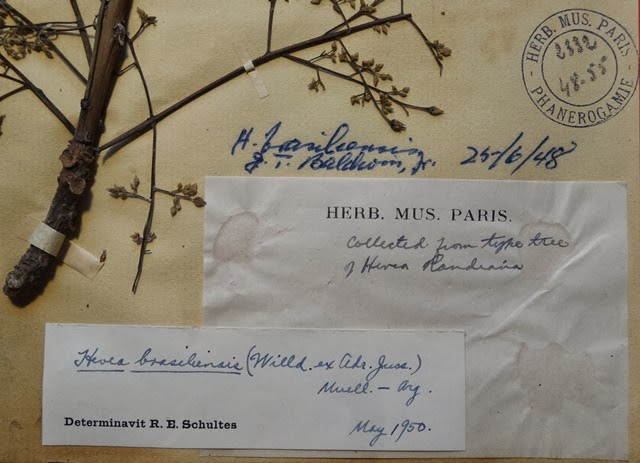 HERB. MUS. PARIS
2332
48-55
PHANEROGAMIE
H. brasiliensis
J. T. Baldwin, Jr. 25/6/48
HERB. MUS. PARIS.
Collected from type tree
of Hevea Randiana
Hevea brasiliensis (Willd. ex Adr. Juss.)
Muell. - Arg.
Determinavit R. E. Schultes
May 1950.